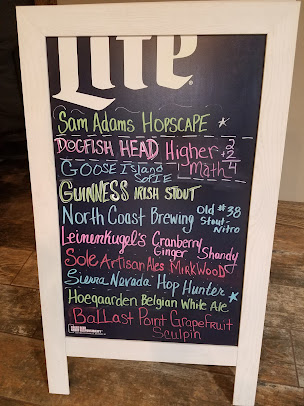 Lite
Sam Adams HOPSCAPE
DOGFISH HEAD Higher Math 2+2 4
GOOSE Island SOFIE
GUINNESS IRISH STOUT
North Coast Brewing Old #38 Stout-Nitro
Leinenkugel's Cranberry Ginger Shandy
Sole Artisan Ales MIRKWOOD
Sierra Nevada Hop Hunter
Hoegaarden Belgian White Ale
Ballast Point Grapefruit
Sculpin